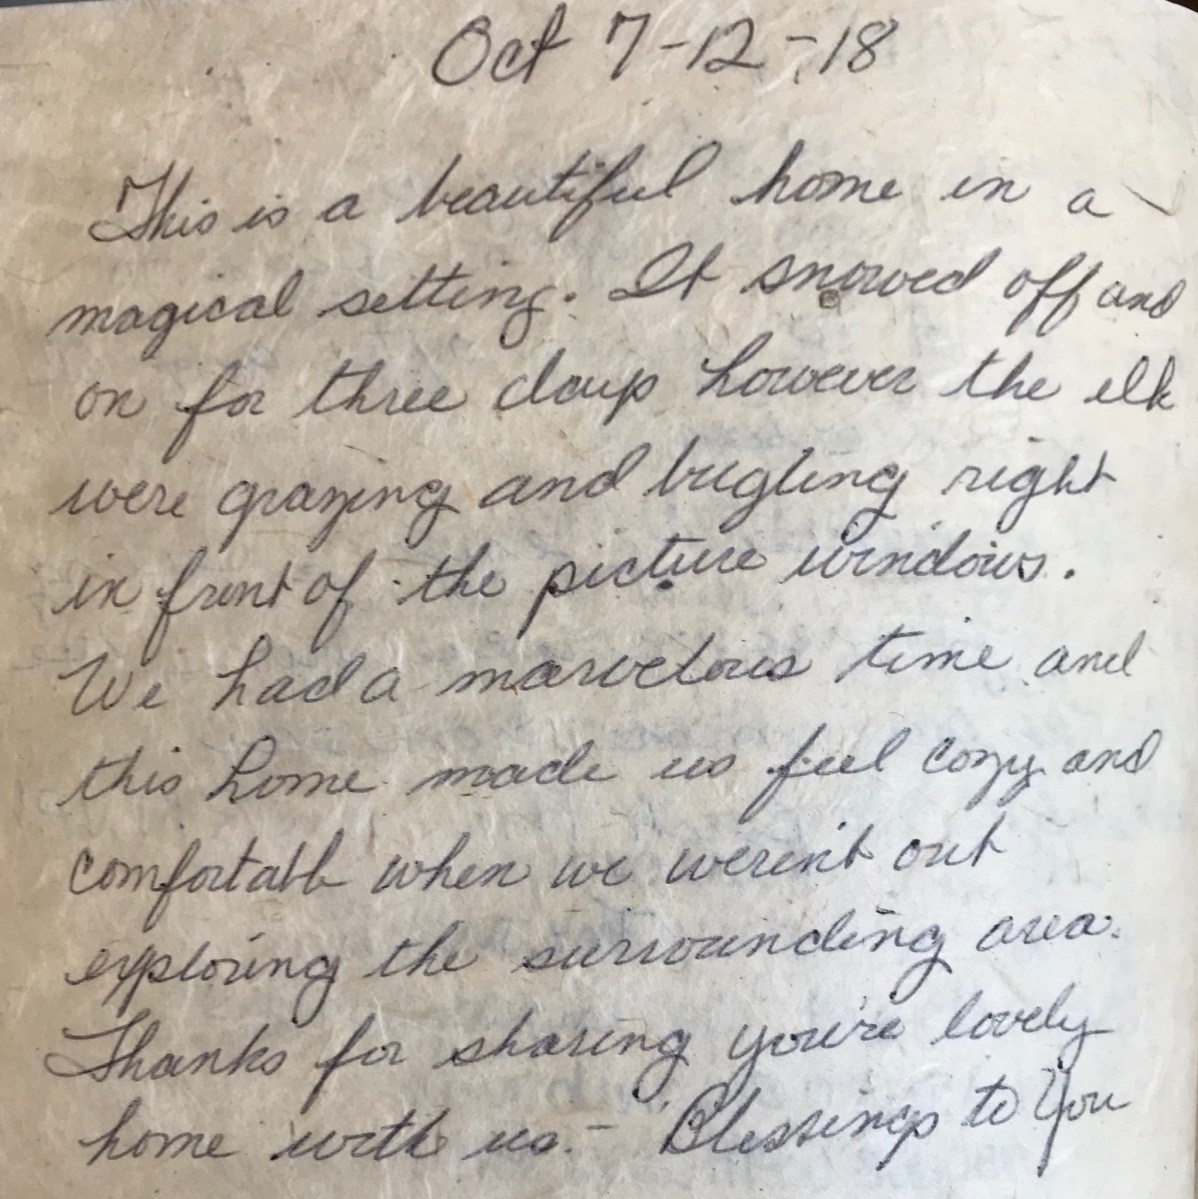 Oct 7-12-18
This is a beautiful home in a
magical setting. It snowed off and
on for three days however the elk
were grazing and bugling right
in front of the picture windows.
We had a marvelous time and
this home made us feel cozy and
comfortable when we weren't out
exploring the surrounding area.
Thanks for sharing you're lovely
home with us. - Blessings to You